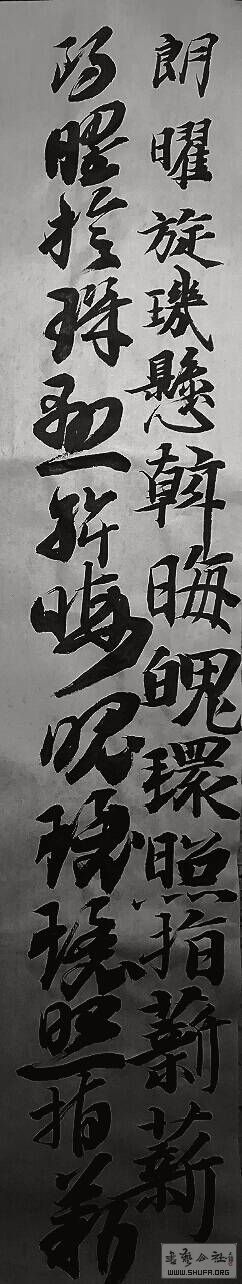 朗曜旋璣懸斡晦魄環照指薪薪
朗曜旋璣懸斡晦魄環環照指薪
書藝公社
WWW.SHUFA.ORG